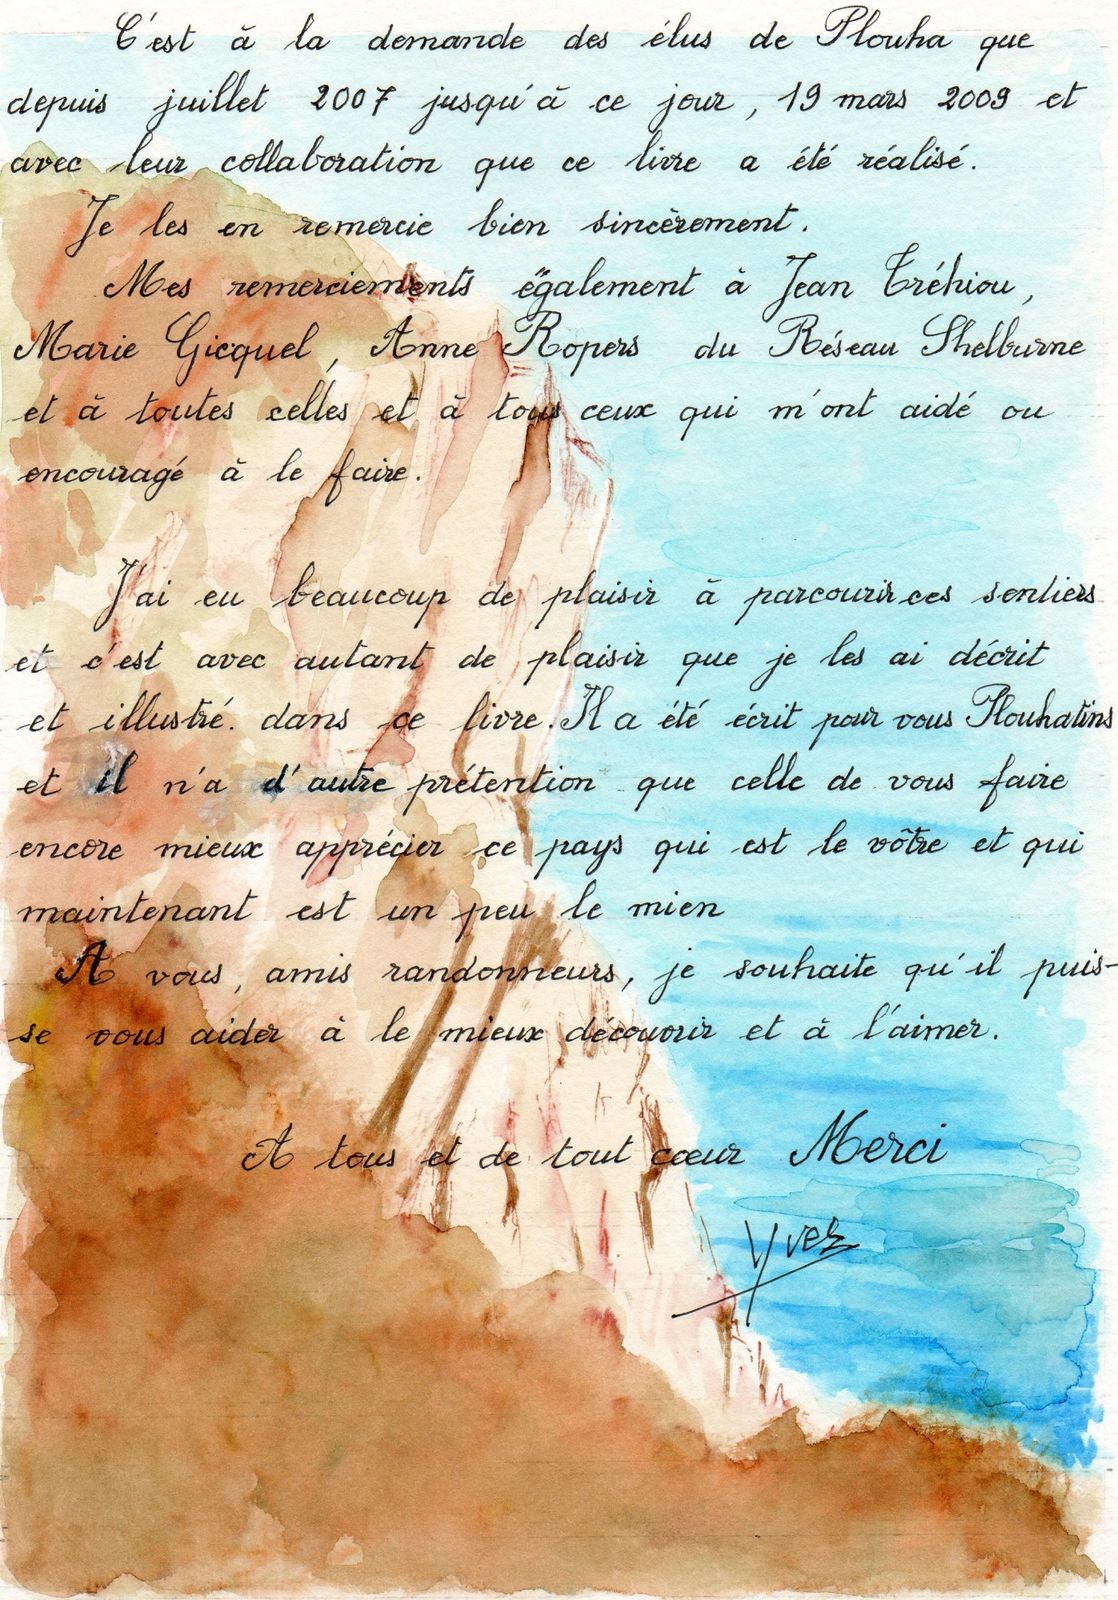 C'est à la demande des élus de Plouha que
depuis juillet 2007 jusqu'à ce jour, 19 mars 2009 et
avec leur collaboration que ce livre a été réalisé.
Je les en remercie bien sincèrement.
Mes remerciements également à Jean Tréhiou,
Marie Gicquel, Anne Ropers du Réseau Shelburne
et à toutes celles et à tous ceux qui m'ont aidé ou
encouragé à le faire.
J'ai eu beaucoup de plaisir à parcourir ces sentiers
et c'est avec autant de plaisir que je les ai décrit
et illustré. dans ce livre. Il a été écrit pour vous Plouhatins
et il n'a d'autre prétention que celle de vous faire
encore mieux apprécier ce pays qui est le vôtre et qui
maintenant est un peu le mien
A vous, amis randonneurs, je souhaite qu'il puis-
se vous aider à le mieux découvrir et à l'aimer.
A tous et de tout cœur Merci
Yves